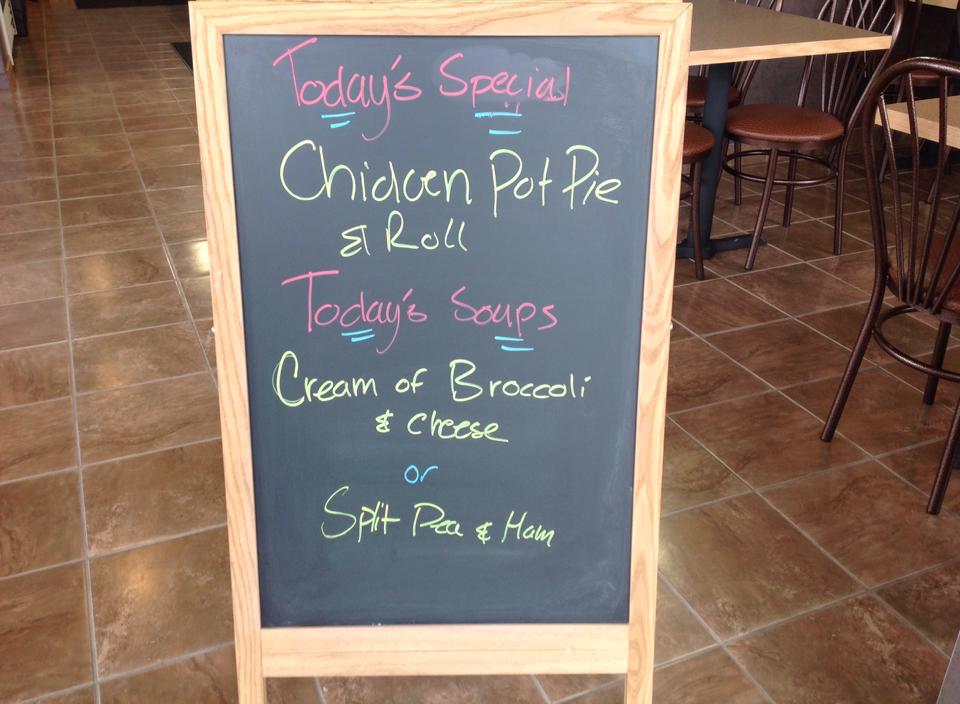 Today's Special
Chicken Pot Pie
& Roll
Today's Soups
Cream of Broccoli
& cheese
or
Split Pea & Ham